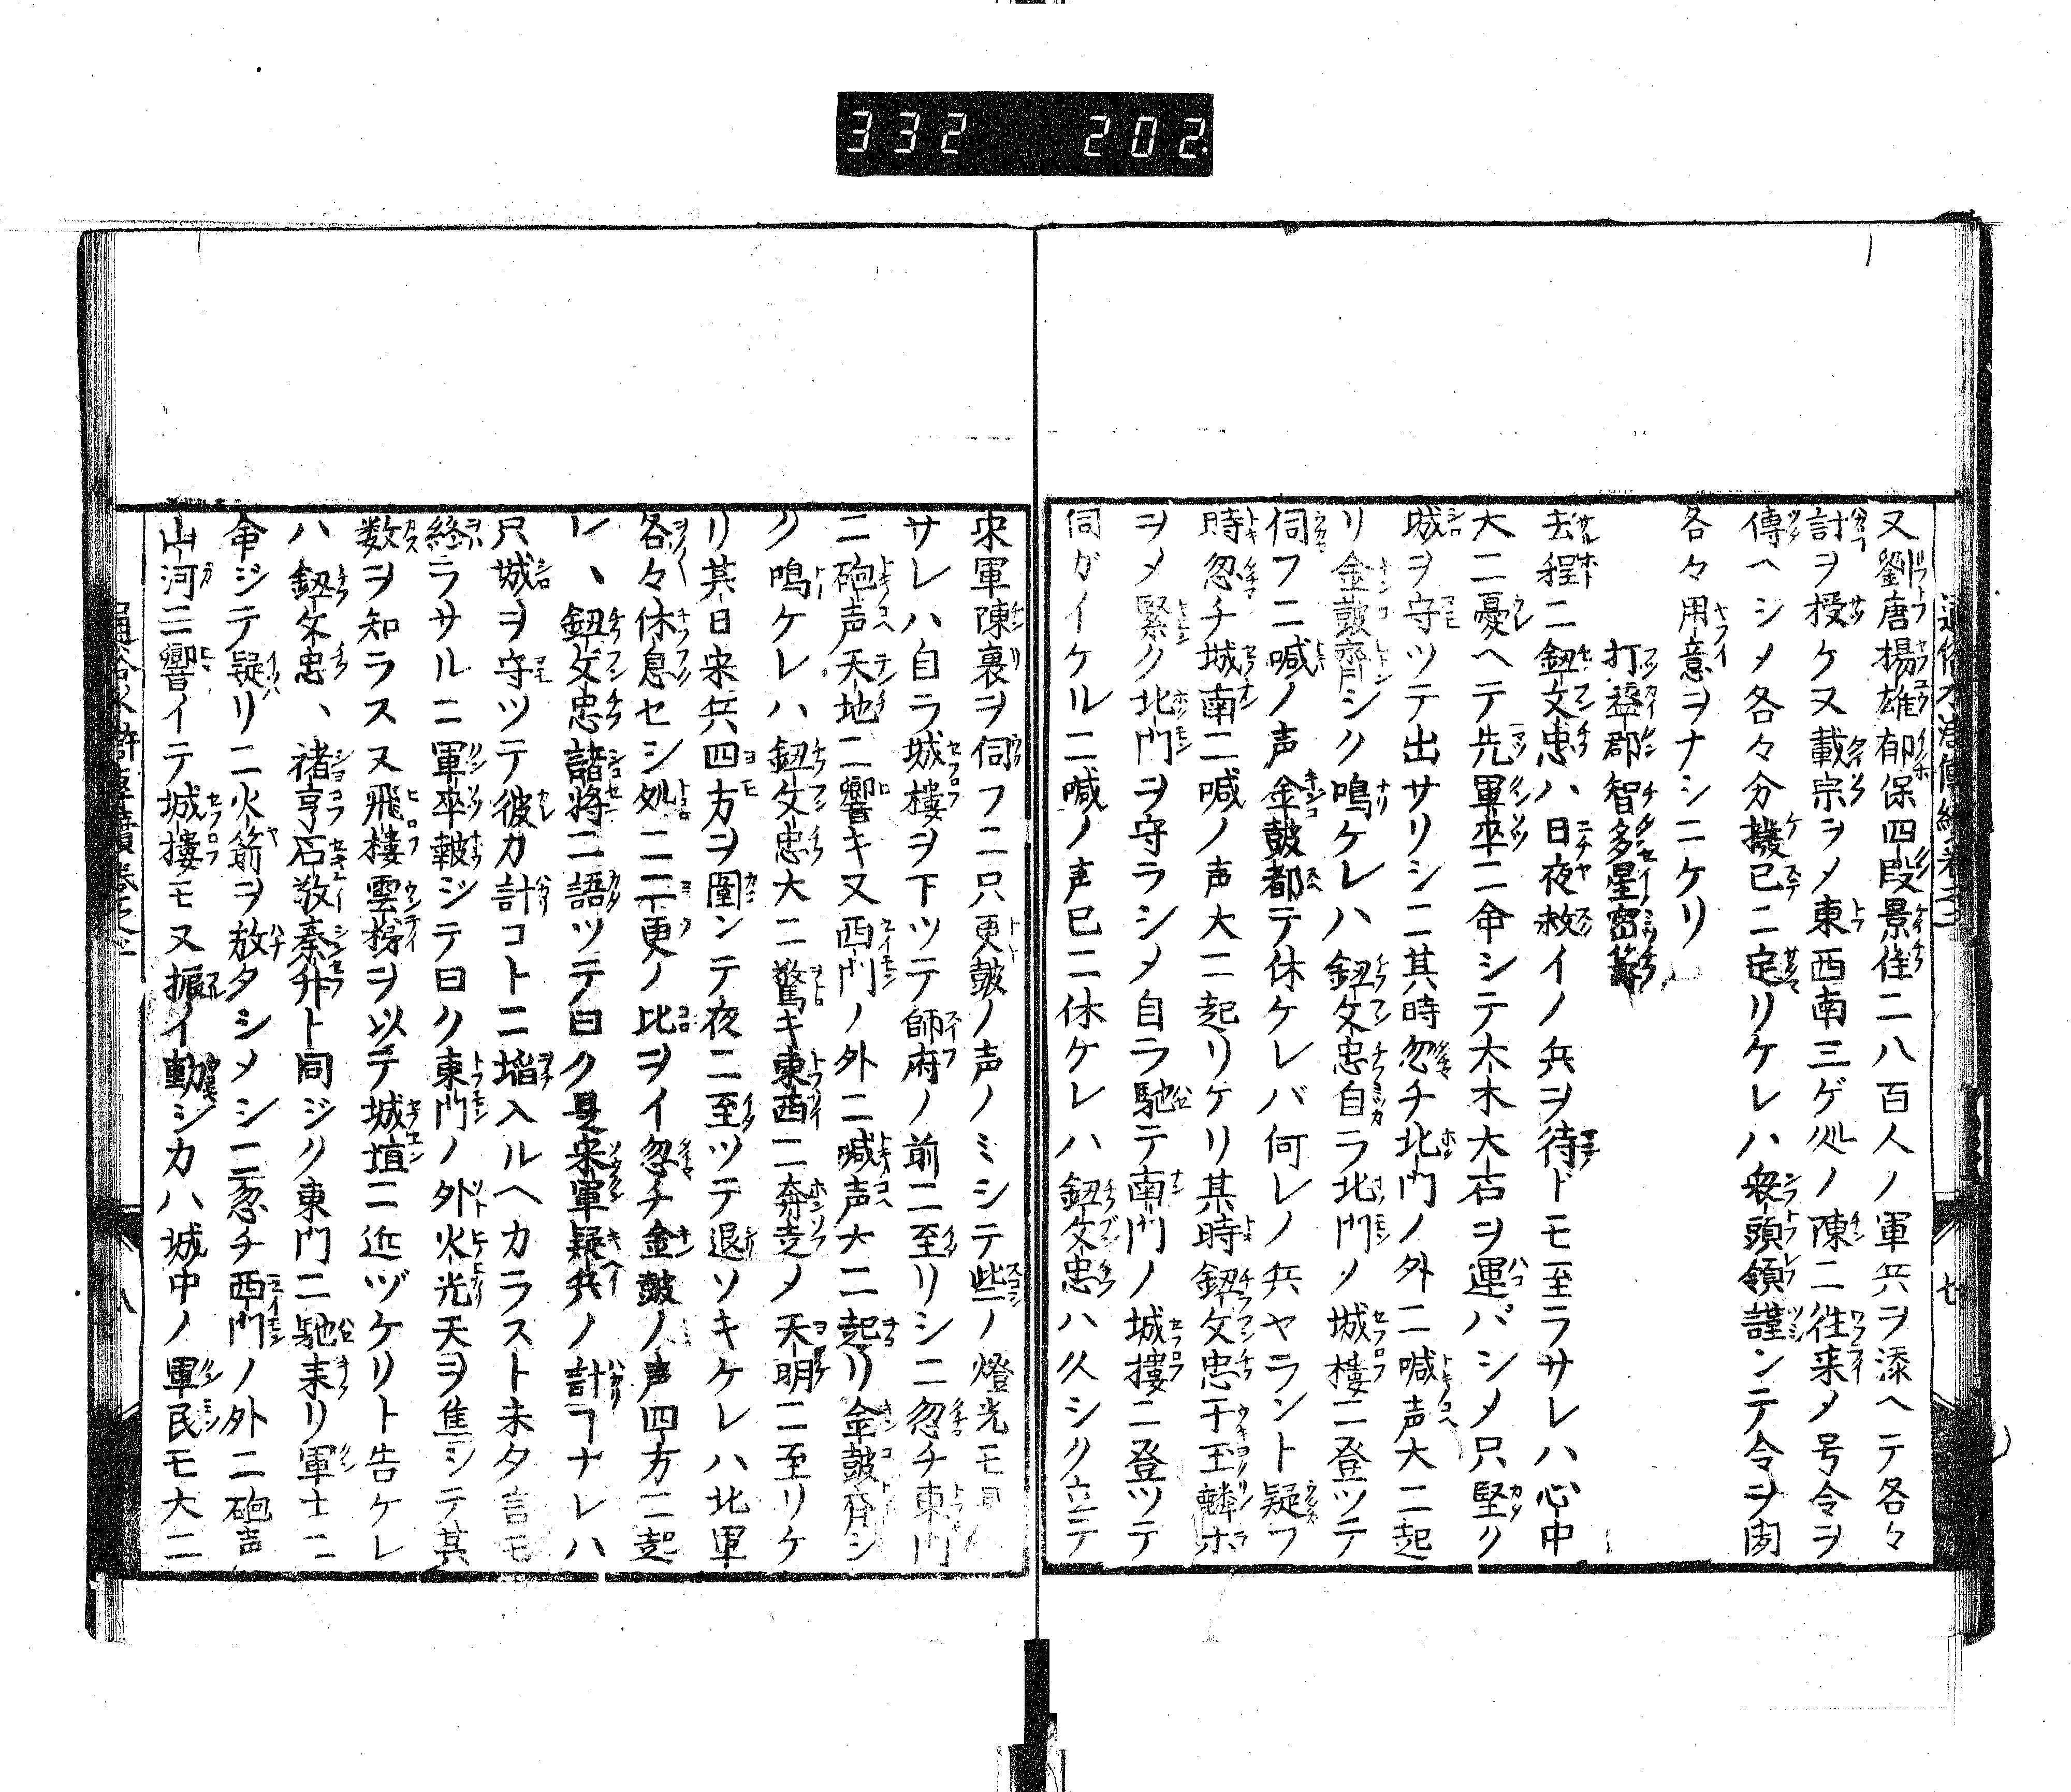 332 202
又劉唐楊雄郁保四段景住二八百人ノ軍兵ヲ添ヘテ各々
計ヲ授ケ又載宗ヲメ東西南三ゲ処ノ陳ニ往来メ号令ヲ
傳ヘシメ各々分撥已ニ定リケレハ衆頭領謹ンテ令ヲ聞
各々用意ヲナシニケリ
打盖郡智多星密籌
去程ニ鈕文忠ハ日夜救イノ兵ヲ待ドモ至ラサレハ心中
大ニ憂ヘテ先軍卒ニ命シテ大木大石ヲ運バシメ只堅ク
城ヲ守ツテ出サリシニ其時忽チ北門ノ外ニ喊声大ニ起
リ金鼓齊シク鳴ケレハ鈕文忠自ラ北門ノ城樓ニ登ツテ
伺フニ喊ノ声金鼓都テ休ケレバ何レノ兵ヤラント疑フ
時忽チ城南ニ喊ノ声大ニ起リケリ其時鈕文忠于玉麟ホ
ヲメ緊ク北門ヲ守ラシメ自ラ馳テ南門ノ城樓ニ登ツテ
伺ガイケルニ喊ノ声已ニ休ケレハ鈕文忠ハ久シク立テ
七
宋軍陳裏ヲ伺フニ只更鼓ノ声ノミシテ些ノ燈光モ見
サレハ自ラ城樓ヲ下ツテ師府ノ前ニ至リシニ忽チ東門
ニ砲声天地ニ響キ又西門ノ外ニ喊声大ニ起リ金鼓齊シ
ク鳴ケレハ鈕文忠大ニ驚キ東西ニ奔走メ天明ニ至リケ
リ其日宋兵四方ヲ圍ンテ夜ニ至ツテ退ソキケレハ北軍
各々休息セシ処ニ二更ノ比ヲイ忽チ金鼓ノ声四方ニ起
レハ鈕文忠諸將ニ語ツテ曰ク是宋軍疑兵ノ計ヿナレハ
只城ヲ守ツテ彼カ計コトニ䧟入ルヘカラスト未タ言モ
終ラサルニ軍卒報ジテ曰ク東門ノ外火光天ヲ焦シテ其
数ヲ知ラス又飛樓雲梯ヲ以テ城垣ニ近ヅケリト告ケレ
ハ鈕文忠、禇亨石敬秦升ト同ジク東門ニ馳来リ軍士ニ
命ジテ疑リニ火箭ヲ放タシメシニ忽チ西門ノ外ニ砲声
山河ニ響イテ城樓モ又振イ動シカハ城中ノ軍民モ大ニ
八